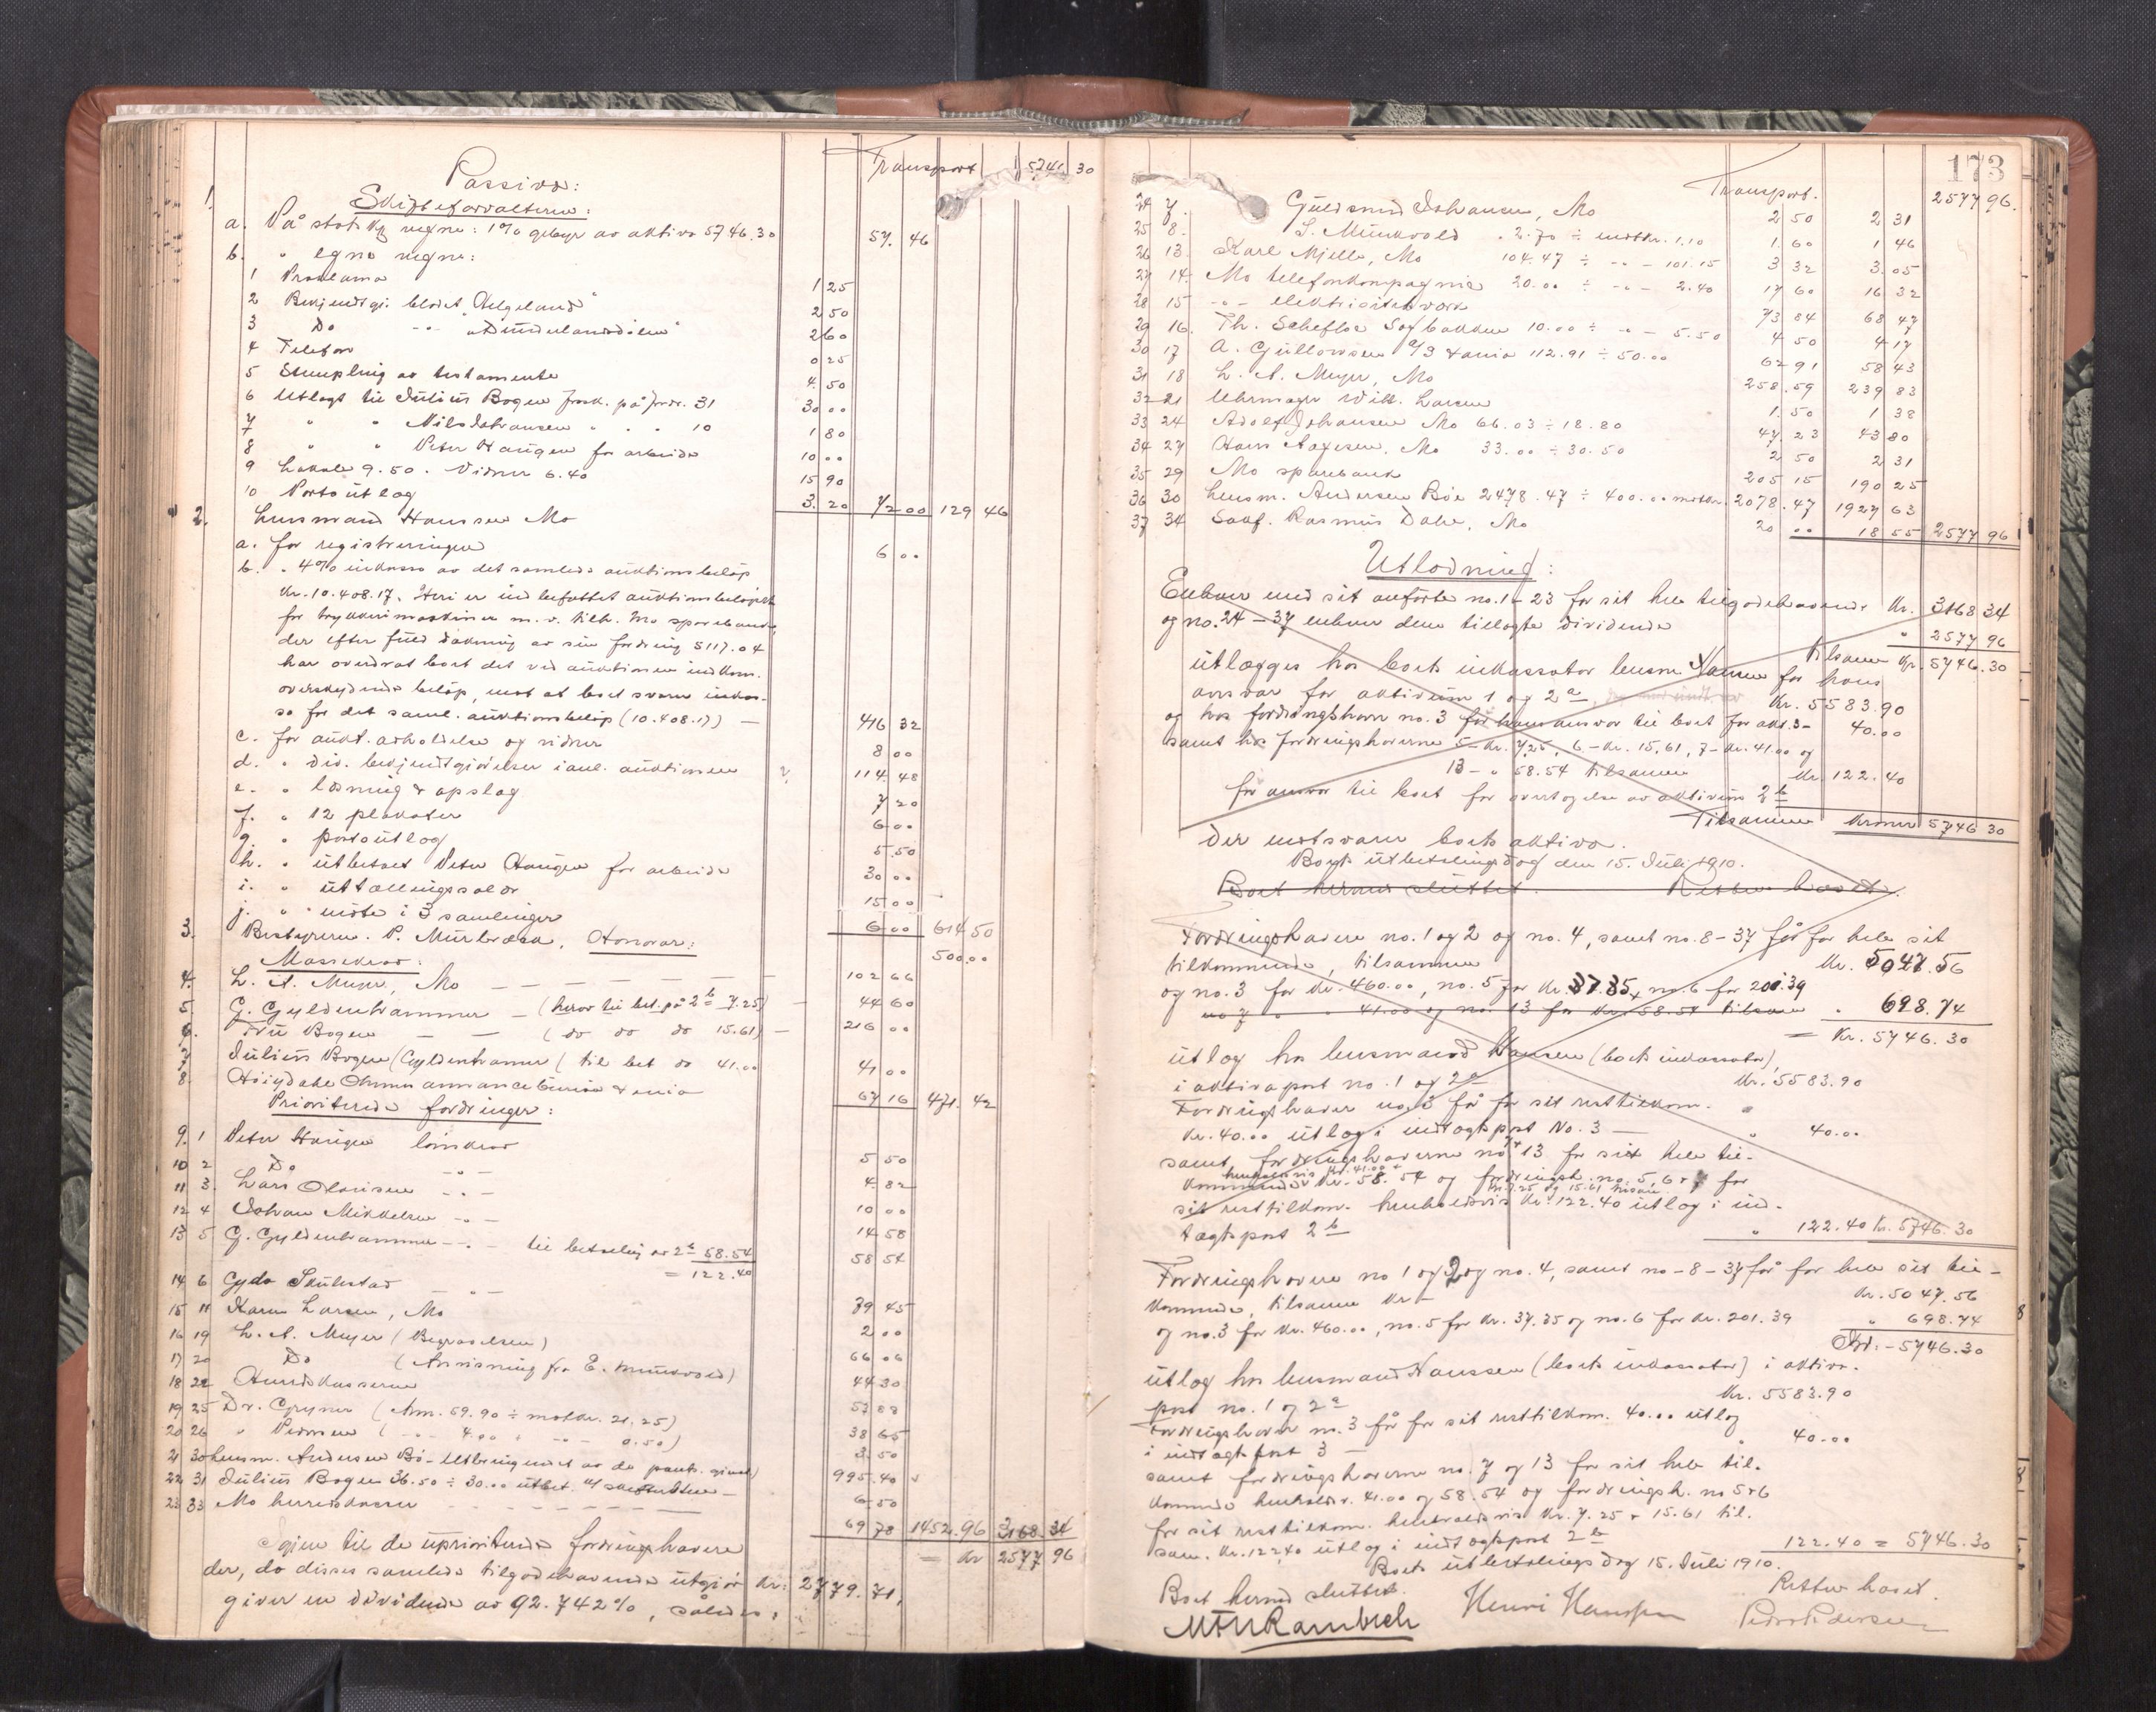 Transport 5741 30
Passiva:
1. Skifteforvalteren:
a. På statsk. vegne: 1% gebyr av aktiva 5746.30 57.46
b. " egne vegne:
1 Proklama 1 25
2 Bekjendtgj. bladet "Helgeland" 2 50
3 Do -"- "Dunderlandsdølen" 2 60
4 Telefon 0 25
5 Stempling av testamente 4.50
6 Utlagt til Julius Bogen forsk. på fordr. 31 30 00
7 " " Nils Johansen " . . 10 1 80
8 " " Peter Haugen for arbeide 10 00
9 Lokale 9.50. Vidner 6.40 15 90
10 Porto utlæg 3.20 72 00 129 46
2. Lensmand Hanssen Mo
a. for registreringen 6 00
b. " 4% inkasso av det samlede auktionsbeløp
Kr. 10.408.17. Heri er indbefattet auktionsbeløpet
for trykkerimaskiner m.v. tilh. Mo sparebank,
der efter fuld dækning av sin fordring 5117.04
har overdrat boet det ved auktionen indkom.
overskydende beløp, mot at boet svarer inkas-
so for det saml. auktionsbeløp (10.408.17) — 416 32
c. for aukt. avholdelse og vidner 8 00
d. " div. bekjendtgjørelser i anl. auktionen 114.48
e. " læsning & opslag 7 20
f. " 12 plakater 6 00
g. " porto utlæg 5.50
h. " utbetalt Peter Haugen for arbeide 30 00
i. " uttællingssalær 15 00
j. " møte i 3 samlinger 6 00 614 50
3. Bestyreren. P. Murbræch. Honorar: 500.00
Massekrav:
4. L. A. Meyer, Mo — — — — 102 66
5. G. Gyldenhammer — (herav til bet. på 2b 7.25) — 44 60
6. Fru Bogen — — (do do do 15.61) — 216 00
7 Julius Bogen (Gyldenhammer (til bet do 41.00 41 00
8. Høydahl Ohmes annoncebureau Kr.ania 67 16 471.42
Prioriterede fordringer:
9. 1 Peter Haugen lønkrav 5 50
10 2 Do -"- 4.82
11 3. Lars Olavsen -"- 10 00
12 4 Johan Mikkelsen -"- 14 58
13 5 G. Gyldenhammer -"- til betaling av 2b 58.54 58 54
= 122.40
14 6 Gyda Skulstad -"- 39 45
15 11 Karen Larsen, Mo 2 00
16 19 L. A. Meyer (Begravelsen) 66 06
17 20 Do (Anvisning fra E. Munkvold) 44 30
18 22 Herredskasseren 57 88
19 25 Dr. Gryner (Anm. 59.90 ÷ motkr. 21.25) 38 65
20 26 " Pedersen (-"- 4.00 ÷ -"- 0.50) 3 50
21 30 Lensm. Andersen Bø - Utbringendet av de pants. gjenst. 995.40
22 31 Julius Bogen 36.50 ÷ 30.00 utbet. 6 50
23 33 Mo herredskasse 69 78 1452.96 3168.34
Igjen til de uprioriterede fordringshavere = Kr 2577 96
der, da disses samlede tilgodehavende utgjør Kr: 2779.71,
giver en dividende av 92.742%, således:
173
Transport. 2577 96.
24 7. Guldsmed Johansen, Mo 2 50 2 31
25 8. S. Munkvold . 2.70 ÷ motkr. 1.10 1.60 1 46
26 13. Karl Mjelle, Mo 104.47 ÷ -"- 101.15 3 32 3.05
27 14. Mo telefonkompagni 20.00 ÷ -"- 2.40 17 60 16 32
28 15 -"- elektricitetsverk 73 84 68 47
29 16. Th. Schefloe Sagbakken 10.00 ÷ -"- 5.50 4 50 4 17
30 17 A. Gullowsen A/S Kr.ania 112.91 ÷ 50.00 62 91 58 43
31 18 L. A. Meyer, Mo 258.59 239 83
32 21 Uhrmager Wilh. Larsen 1.50 1 38
33 24 Adolf Johansen Mo 66.03 ÷ 18.80 47.23 43 80
34 27 Hans Aagesen, Mo 33.00 ÷ 30.50 2 50 2 31
35 29 Mo sparebank 205 15 190 25
36 30 Lensm. Andersen Bøe 2478.47 ÷ 400.00 motkr. 2078.47 1927 63
37 34 Sakf. Rasmus Dahl, Mo 20 00 18 55 2577 96
Utlodning:
Enhver med sit anførte no. 1-23 for sit hele tilgodehavende Kr. 3168 34
og no. 24 - 37 enhver dem tillagte dividende " 2577 96
tilsammen Kr. 5746.30
utlægges hos boets inkassator lensm. Hanssen for hans
ansvar for aktivum 1 og 2a, Kr. 5583.90
og hos fordringshaver no. 3 for hans ansvar til boet for akt. 3 - 40.00
samt hos fordringshaverne 5 - Kr. 7.25, 6 - Kr. 15.61, 7 - Kr. 41.00 og
13 - " 58.54 tilsammen Kr. 122.40
for ansvar til boet for overtagelse av aktivum 2b
Tilsammen Kroner 5746 30
der motsvarer boets aktiva.
Boets utbetalingsdag den 15. Juli 1910.
Boet hermed sluttet. Retten hævet.
Fordringshavere no. 1 og 2 og no. 4, samt no. 8-37 får for hele sit
tilkommende, tilsammen Kr. 5047.56
og no. 3 for Kr. 460.00, no. 5 for Kr. 37.35, no. 6 for 201.39
no 7 " " 41.00 og no. 13 for Kr. 58.54 tilsammen " 698.74
= Kr. 5746.30
utlæg hos lensmand Hanssen (boets inkassator),
i aktiva post no. 1 og 2a Kr. 5583.90
Fordringshaver no. 3 får for sit resttilkom.
Kr. 40.00 utlæg i indtægtspost No. 3 — " 40.00
samt fordringshaverne no. 7 + 13 for sit hele til-
kommende henholdsvis Kr. 41.00 + Kr. 58.54 og fordringsh. no. 5, 6 for
sit resttilkom. henholdsvis Kr. 7.25 og 15.61 tilsam. Kr. 122.40 utlæg i ind-
tægtspost 2b " 122.40 Kr. 5746.30
Fordringshavere no 1 og 2 og no. 4, samt no - 8 - 37 får for hele sit til-
kommende, tilsammen Kr - Kr. 5047.56
og no. 3 for Kr. 460.00, no. 5 for Kr. 37.35 og no. 6 for Kr. 201.39 " 698.74
Kr. - 5746.30
utlæg hos lensmand Hanssen (boets inkassator) i aktiva-
post no. 1 og 2a Kr. 5583.90
Fordringshaver no. 3 får for sit resttilkom. 40.00 utlæg
i indtægtspost 3 — " 40.00
samt fordringshaverne no. 7 og 13 for sit hele til-
kommende henholdsv. 41.00 og 58.54 og fordringsh. no 5 + 6
for sit resttilkom. henholdsvis Kr. 7.25 + 15.61 til-
sam. Kr. 122.40 utlæg i indtægtspost 2b 122.40 = 5746.30
Boets utbetalingsdag 15. Juli 1910.
Boet hermed sluttet. Retten hævet.
Henri Hanssen Peder Pedersen